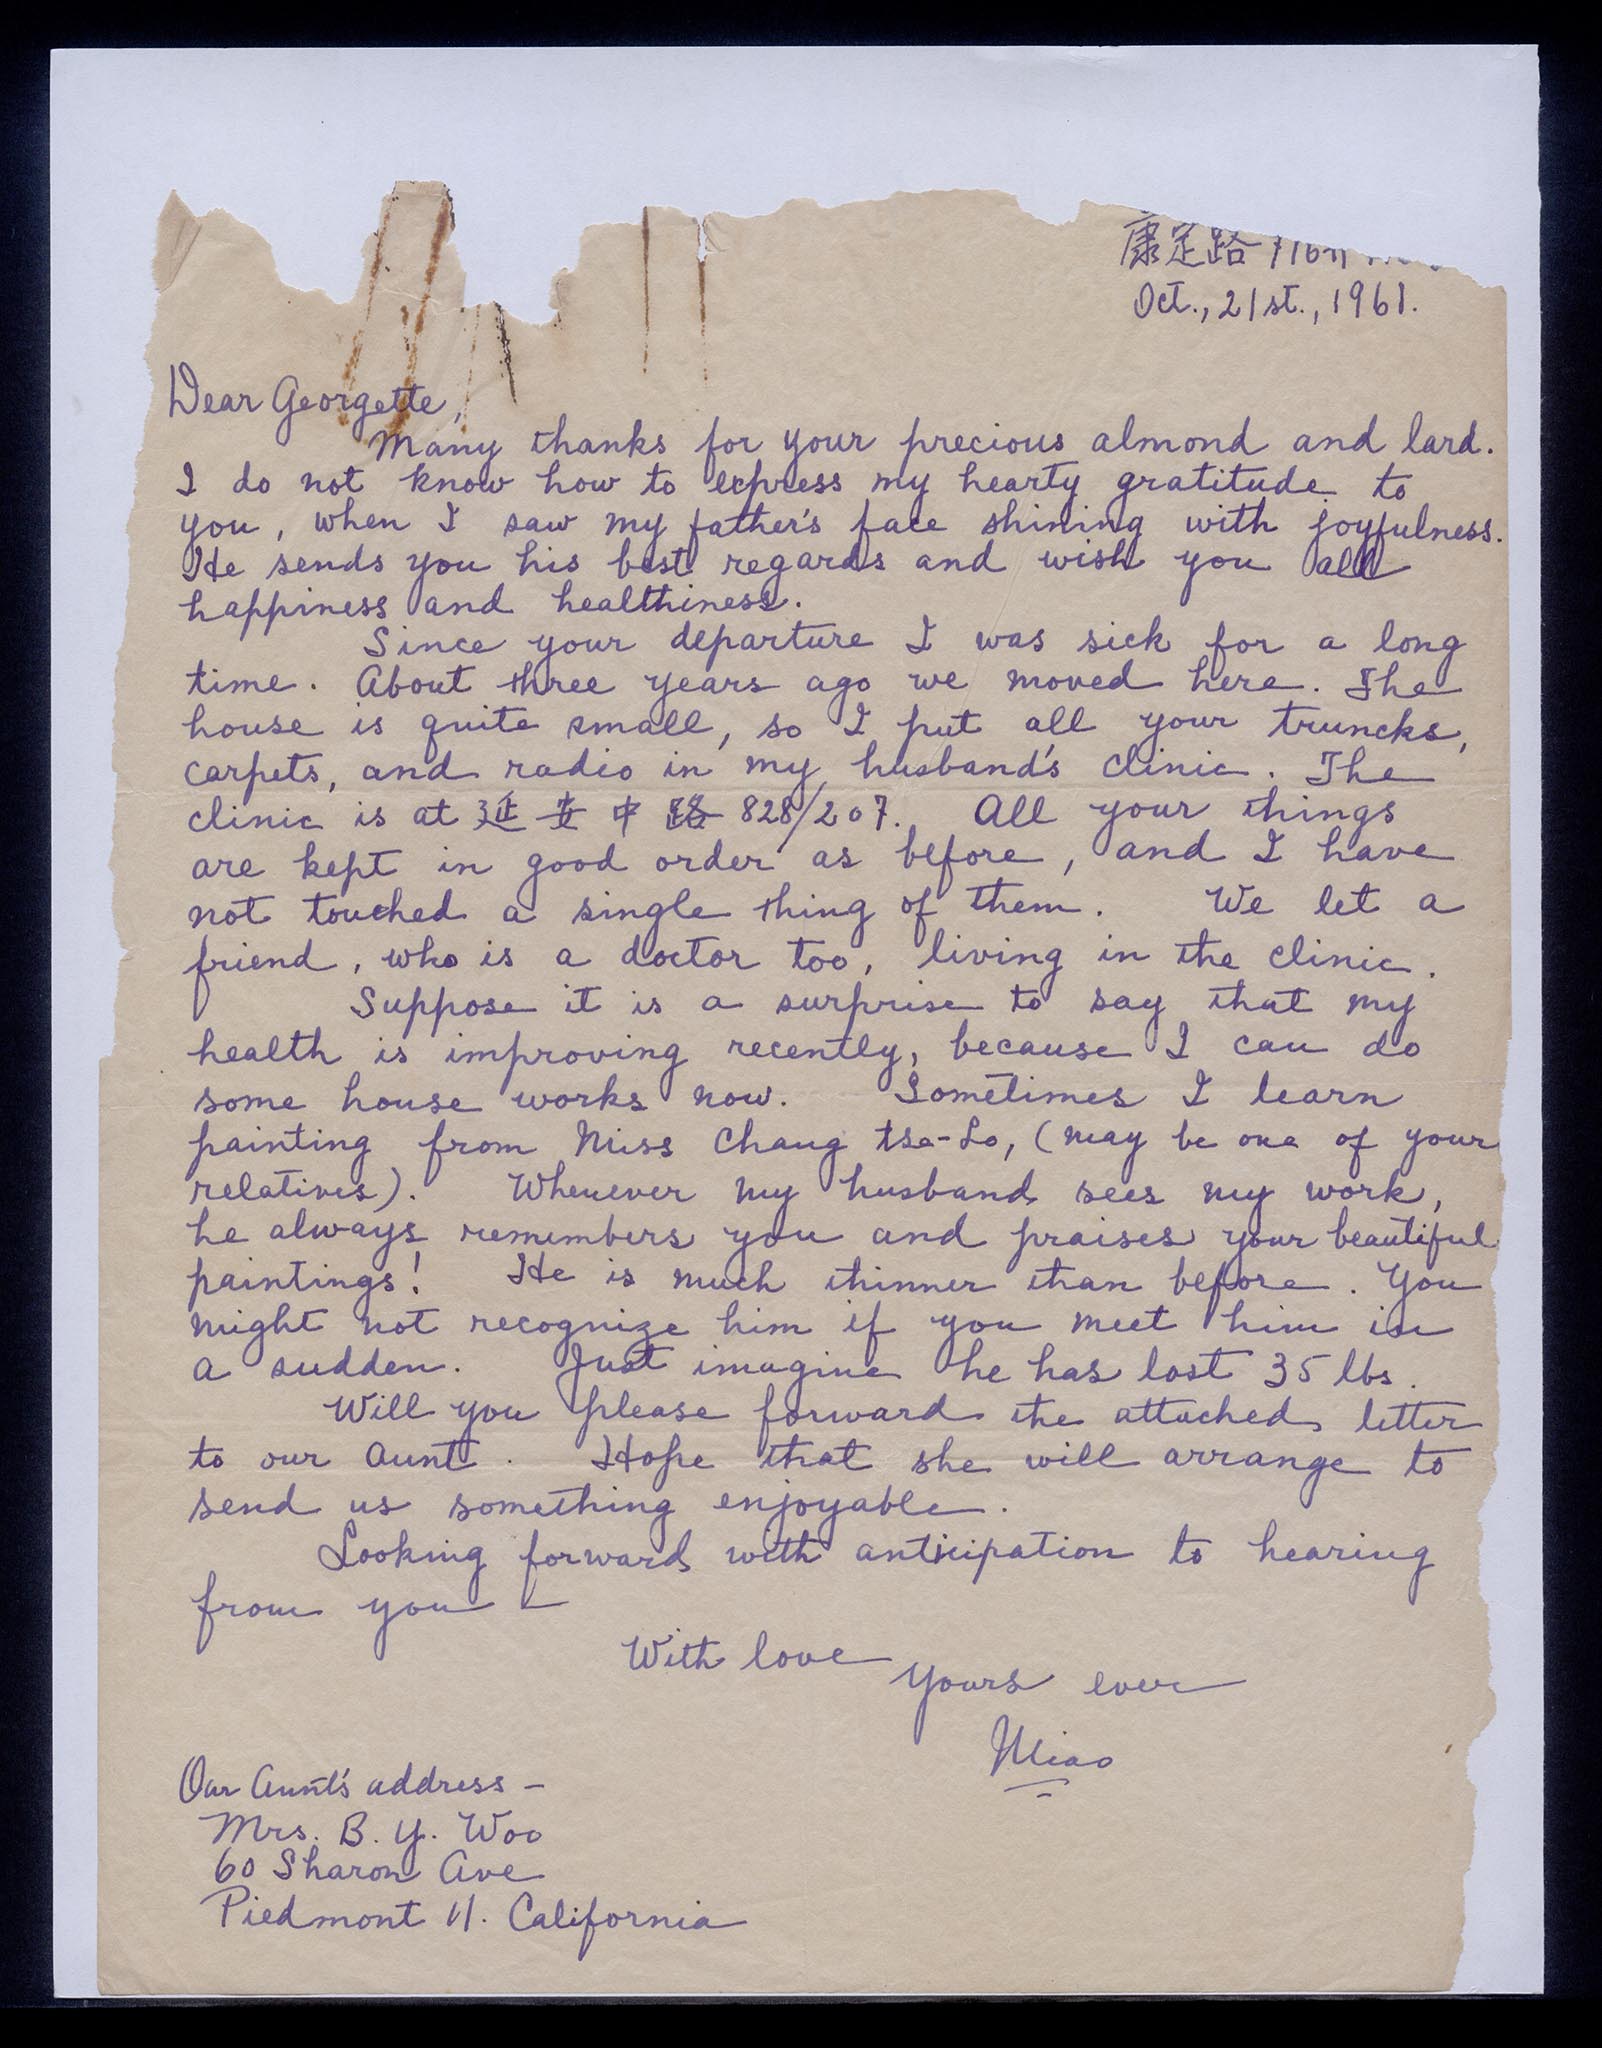 康定路
Oct., 21st., 1961.
Dear Georgette,
Many thanks for your precious almond and lard.
I do not know how to express my hearty gratitude to
you, when I saw my father's face shining with joyfulness.
He sends you his best regards and wish you all
happiness and healthiness.
Since your departure I was sick for a long
time. About three years ago we moved here. The
house is quite small, so I put all your truncks,
carpets, and radio in my husband's clinic. The
clinic is at 延安中路 828/207. All your things
are kept in good order as before, and I have
not touched a single thing of them. We let a
friend, who is a doctor too, living in the clinic.
Suppose it is a surprise to say that my
health is improving recently, because I can do
some house works now. Sometimes I learn
painting from Miss Chang tse-Lo, (may be one of your
relatives). Whenever my husband sees my work,
he always remembers you and praises your beautiful
paintings! He is much thinner than before. You
might not recognize him if you meet him in
a sudden. Just imagine he has lost 35 lbs.
Will you please forward the attached letter
to our aunt. Hope that she will arrange to
send us something enjoyable.
Looking forward with anticipation to hearing
from you –
With love
Yours ever
Miao
Our Aunt's address –
Mrs. B. Y. Woo
60 Sharon Ave
Piedmont 11. California